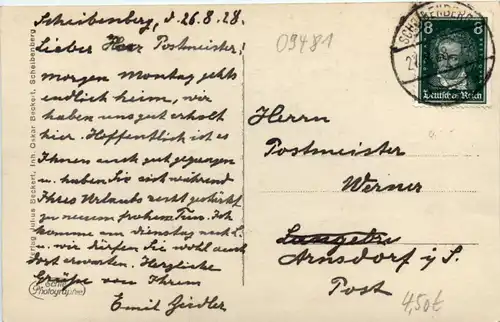 Scheibenberg, d. 26.8.28.
Lieber Herr Postmeister!
morgen Montag gehts
endlich heim, wir
haben uns gut erholt
hier. Hoffentlich ist es
Ihnen auch gut gegangen
u. haben Sie sich während
Ihres Urlaubs recht gestärkt
zu neuem frohem Tun. Ich
komme am dienstag nach L.
u. wir dürfen Sie wohl auch
dort erwarten. Herzliche
Grüße von Ihrem
Emil Ziedler
Verlag Julius Beckert, Inh. Oskar Beckert, Scheibenberg
Echte
Photographie
09481
SCHEIBENBERG
8 8
Deutsches Reich
Herrn
Postmeister
Werner
Langebr
Arnsdorf i/S.
Post
4,50€